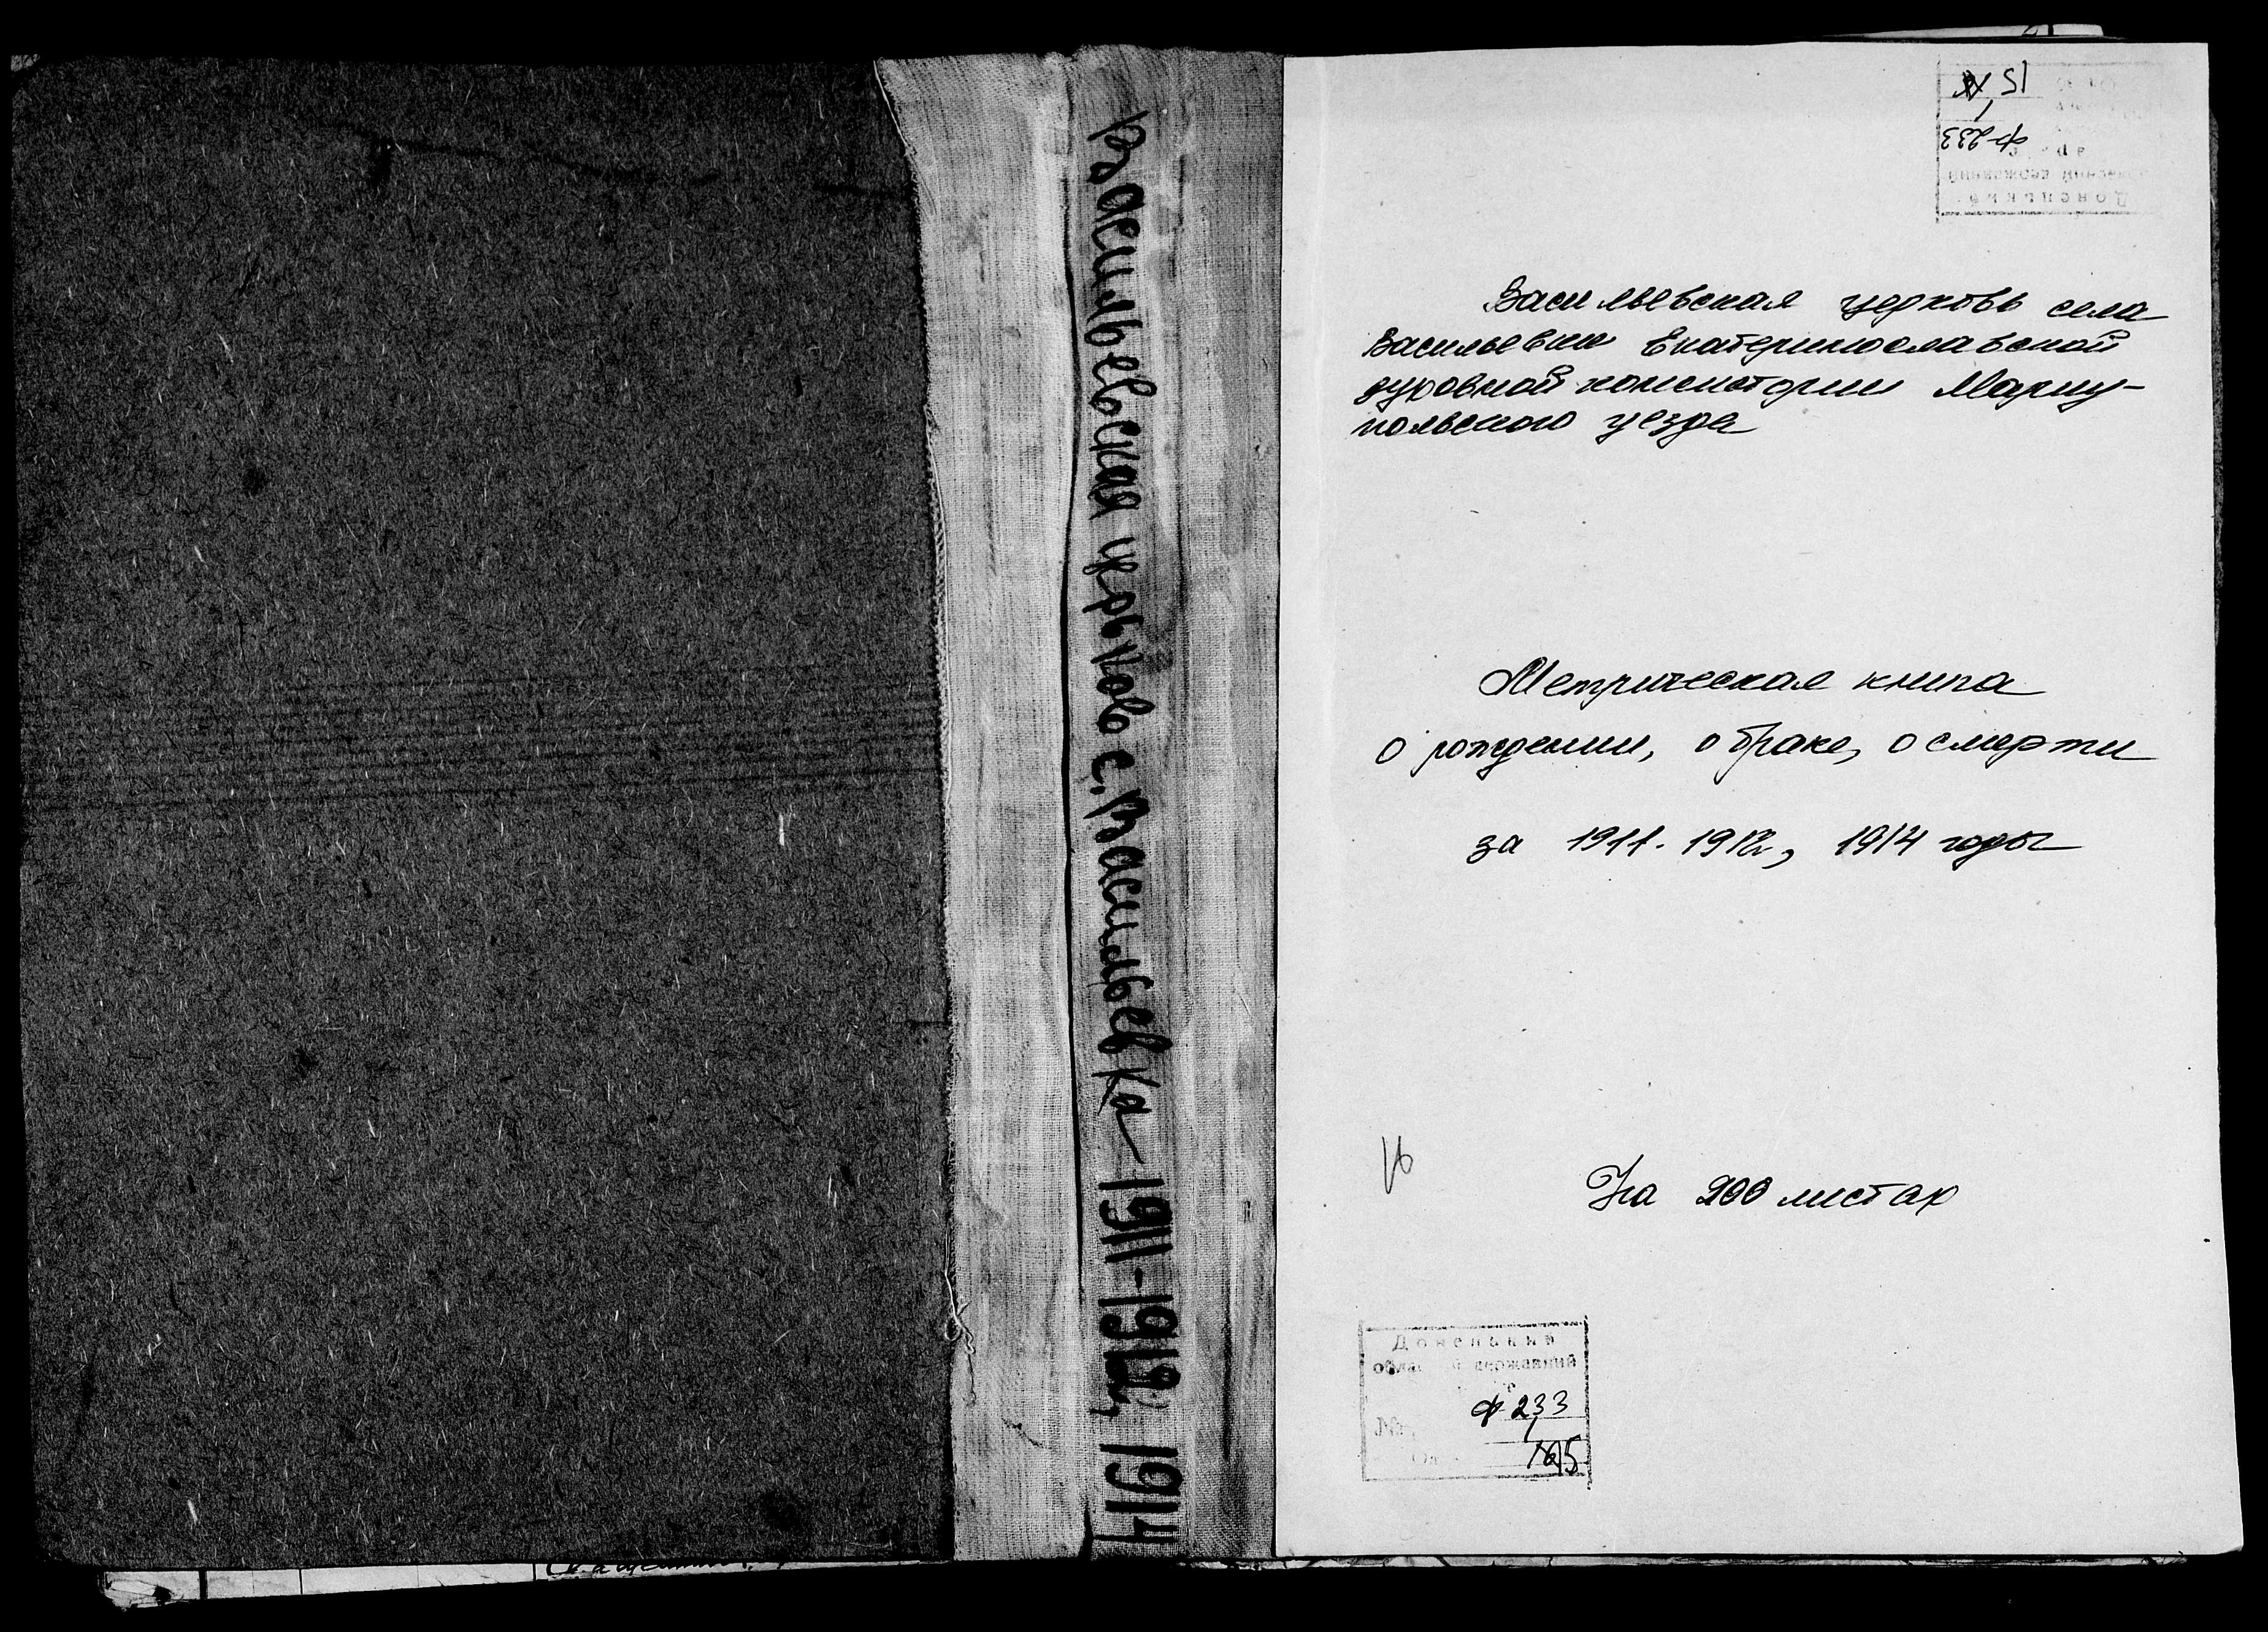 Васильевская церковь с. Васильевка - 1911-1912, 1914
Ф-233
Васильевская церковь села
Васильевки Екатеринославской
духовной консистории Мариу-
польского уезда
Метрическая книга
о рождении, о браке, о смерти
за 1911-1912, 1914 годы
На 200 листах
Донецький
державний
Ф 233